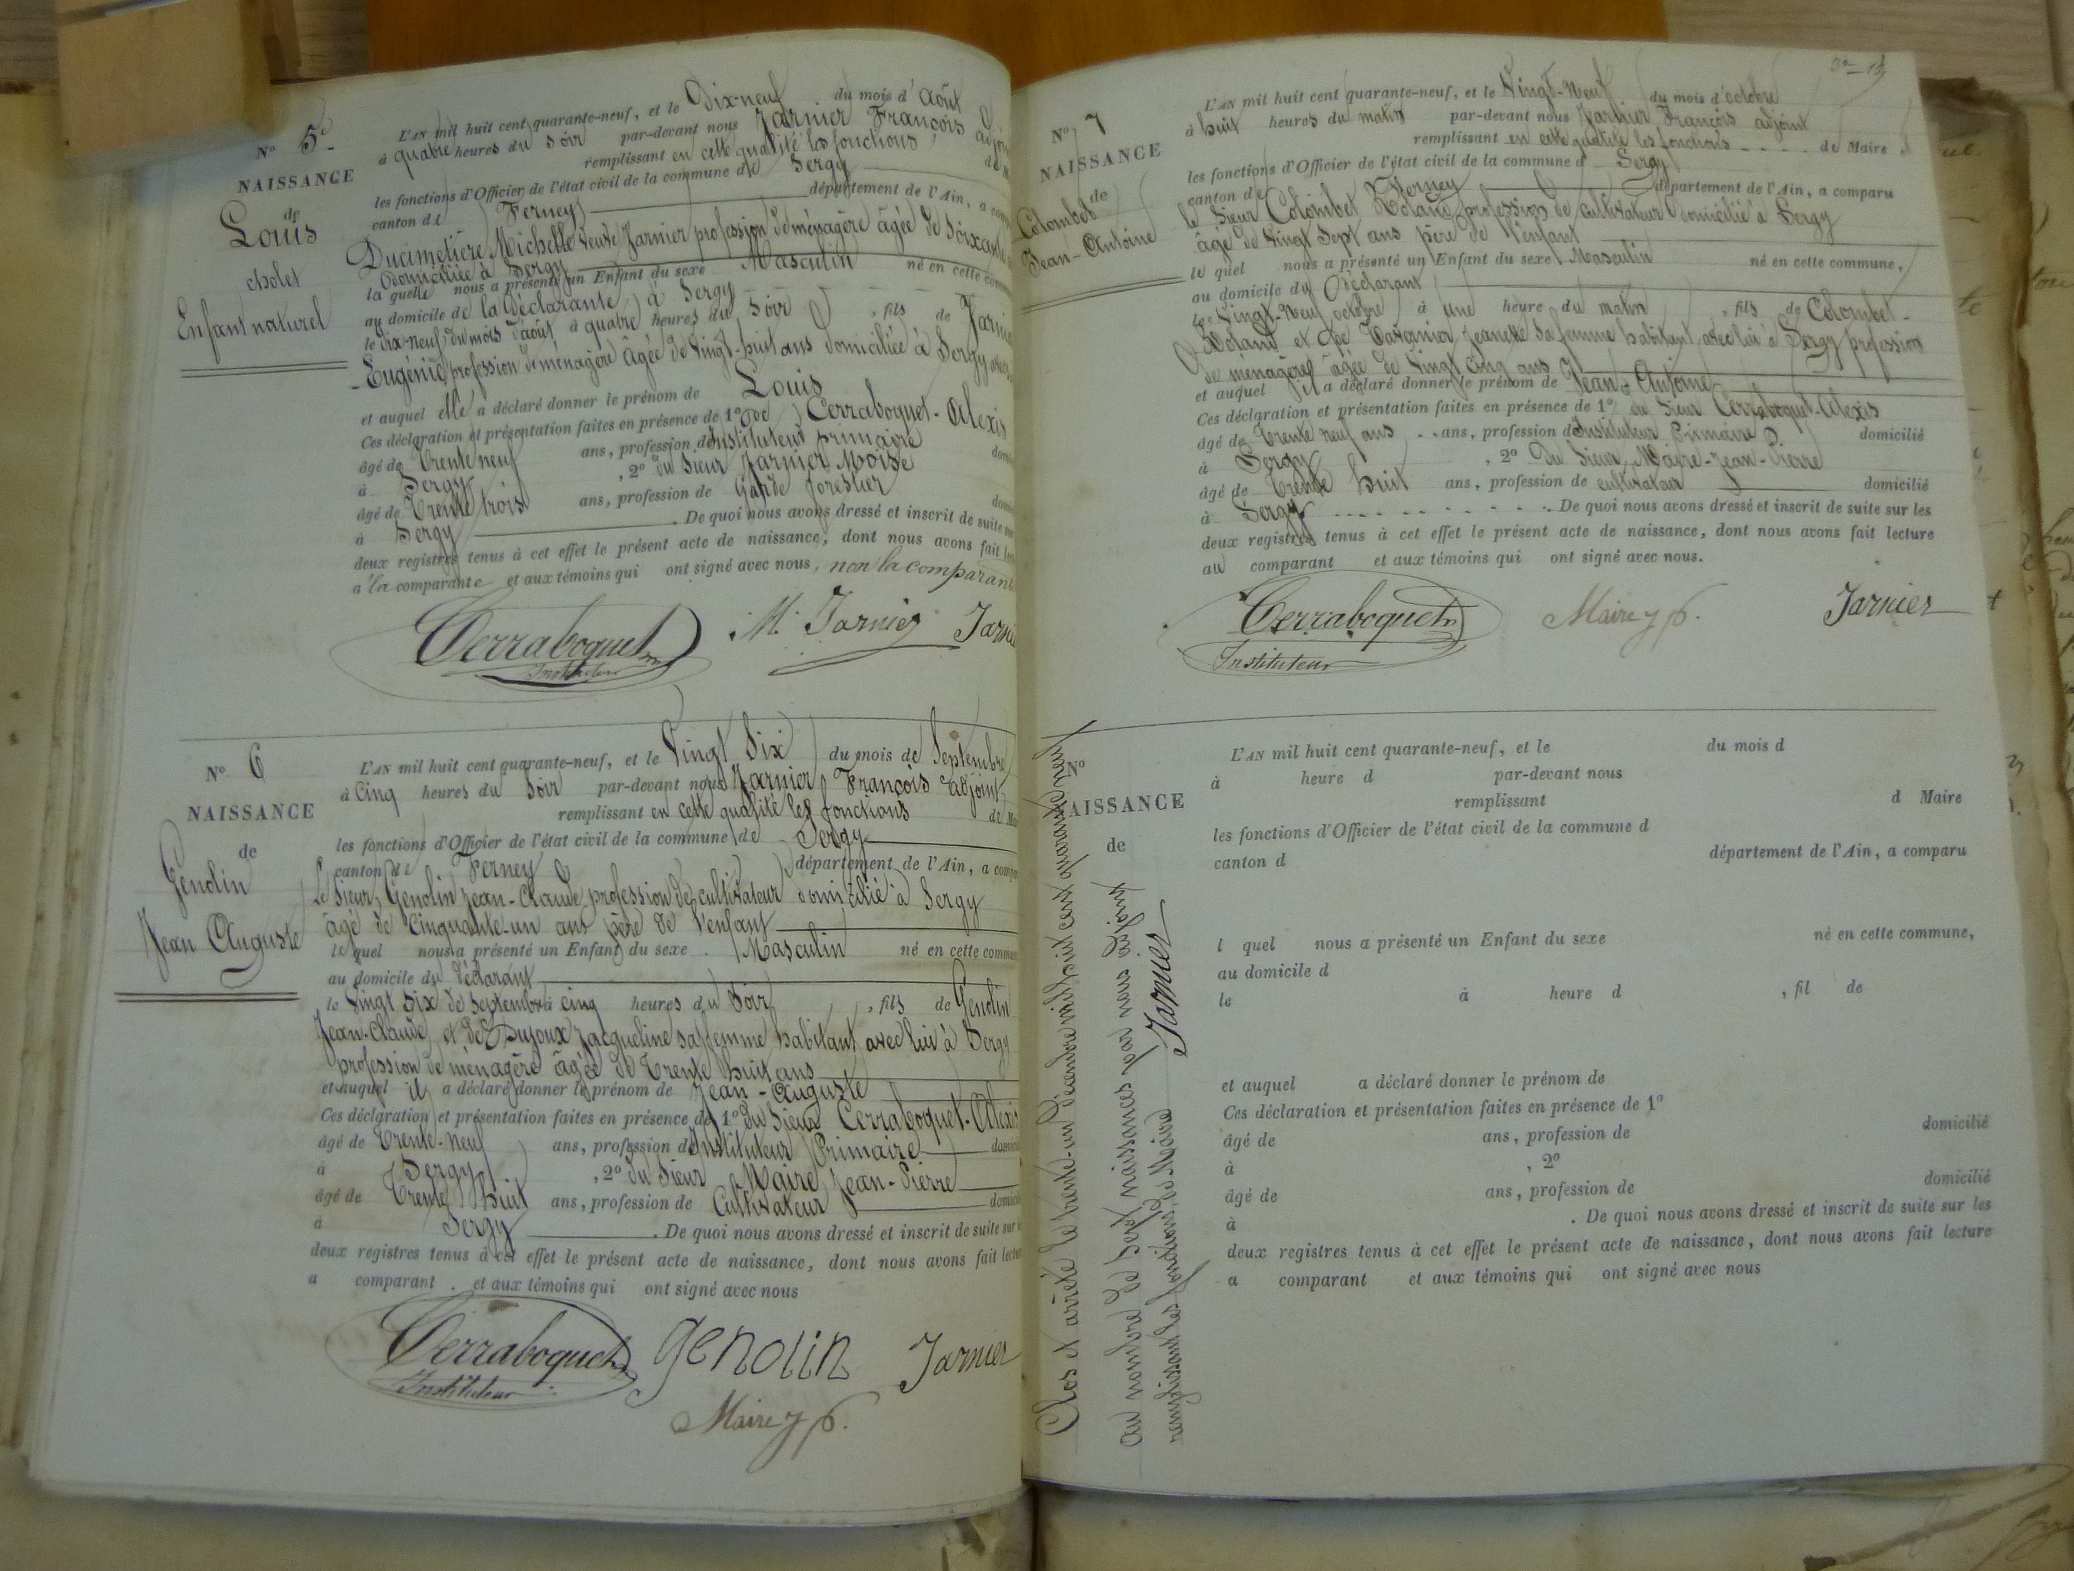 N° 5e
NAISSANCE
de
Louis
Enfant naturel
L'AN mil huit cent quarante-neuf, et le Dix-neuf du mois d'Août
à quatre heures du soir par-devant nous Jarnier François adjoint
remplissant en cette qualité les fonctions de
les fonctions d'Officier de l'état civil de la commune de Sergy
canton de Ferney département de l'Ain, a
Ducimetière Michelle veuve Jarnier profession de ménagère âgée de soixante
Domiciliée à Sergy
la quelle nous a présenté un Enfant du sexe Masculin né en cette
au domicile de la Déclarante à Sergy
le dix-neuf du mois d'août à quatre heures du soir, fils de Jarnier
Eugénie profession de ménagère âgée de Vingt-huit ans domiciliée à Sergy
et auquel elle a déclaré donner le prénom de Louis
Ces déclaration et présentation faites en présence de 1° de Cerraboquet-Alexis
âgé de Trente neuf ans, profession d'Instituteur primaire
à Sergy, 2° du Sieur Jarnier Moïse
âgé de Trente trois ans, profession de Garde forestier
à Sergy. De quoi nous avons dressé et inscrit de suite sur
deux registres tenus à cet effet le présent acte de naissance, dont nous avons fait
a la comparante et aux témoins qui ont signé avec nous, non la comparante
Cerraboquet M. Jarnier Jarnier
Instituteur
N° 6
NAISSANCE
de
Genolin
Jean Auguste
L'AN mil huit cent quarante-neuf, et le Vingt Six du mois de Septembre
à Cinq heures du Soir par-devant nous Jarnier François adjoint
remplissant en cette qualité les fonctions de
les fonctions d'Officier de l'état civil de la commune de Sergy
canton de Ferney département de l'Ain, a
Le Sieur Genolin Jean-Claude profession de cultivateur domicilié à Sergy
âgé de Cinquante-un ans père de l'enfant
le quel nous a présenté un Enfant du sexe Masculin né en cette
au domicile du déclarant
le Vingt Six de Septembre à cinq heures du Soir, fils de Genolin
Jean-Claude et de Dujoux Jacqueline sa femme habitant avec lui à Sergy
profession de ménagère âgée de Trente huit ans
et auquel il a déclaré donner le prénom de Jean-Auguste
Ces déclaration et présentation faites en présence de 1° du Sieur Cerraboquet-Alexis
âgé de Trente-neuf ans, profession d'Instituteur Primaire
à Sergy, 2° du Sieur Maire Jean-Pierre
âgé de Trente huit ans, profession de Cultivateur
à Sergy. De quoi nous avons dressé et inscrit de suite sur
deux registres tenus à cet effet le présent acte de naissance, dont nous avons fait
a comparant et aux témoins qui ont signé avec nous
Cerraboquet genolin Jarnier
Instituteur
Maire J p.
N° 7
NAISSANCE
de
Colombet
Jean-Antoine
L'AN mil huit cent quarante-neuf, et le Vingt-Neuf du mois d'octobre
à huit heures du matin par-devant nous Jarnier François adjoint
remplissant en cette qualité les fonctions de Maire
les fonctions d'Officier de l'état civil de la commune d Sergy
canton de Ferney département de l'Ain, a comparu
le Sieur Colombet Roland profession de cultivateur domicilié à Sergy
âgé de Vingt Sept ans père de l'enfant
le quel nous a présenté un Enfant du sexe Masculin né en cette commune,
au domicile du Déclarant
le Vingt-Neuf octobre à une heure du matin, fils de Colombet-
Roland et de Tavernier Jeanette sa femme habitant avec lui à Sergy profession
de ménagère âgée de Vingt cinq ans
et auquel il a déclaré donner le prénom de Jean-Antoine
Ces déclaration et présentation faites en présence de 1° du Sieur Cerraboquet-Alexis
âgé de Trente neuf ans ans, profession d'Instituteur Primaire domicilié
à Sergy, 2° du Sieur Maire-Jean-Pierre
âgé de Trente huit ans, profession de cultivateur domicilié
à Sergy. De quoi nous avons dressé et inscrit de suite sur les
deux registres tenus à cet effet le présent acte de naissance, dont nous avons fait lecture
au comparant et aux témoins qui ont signé avec nous.
Cerraboquet Maire J p. Jarnier
Instituteur
N°
AISSANCE
de
L'AN mil huit cent quarante-neuf, et le du mois d
à heure d par-devant nous
remplissant d Maire
les fonctions d'Officier de l'état civil de la commune d
canton d département de l'Ain, a comparu
l quel nous a présenté un Enfant du sexe né en cette commune,
au domicile d
le à heure d, fil de
et auquel a déclaré donner le prénom de
Ces déclaration et présentation faites en présence de 1°
âgé de ans, profession de domicilié
à, 2°
âgé de ans, profession de domicilié
à. De quoi nous avons dressé et inscrit de suite sur les
deux registres tenus à cet effet le présent acte de naissance, dont nous avons fait lecture
a comparant et aux témoins qui ont signé avec nous
Clos et arrêté le trente-un décembre mil huit cent quarante neuf
au nombre de Sept naissances par nous adjoint
remplissant les fonctions de Maire
Jarnier